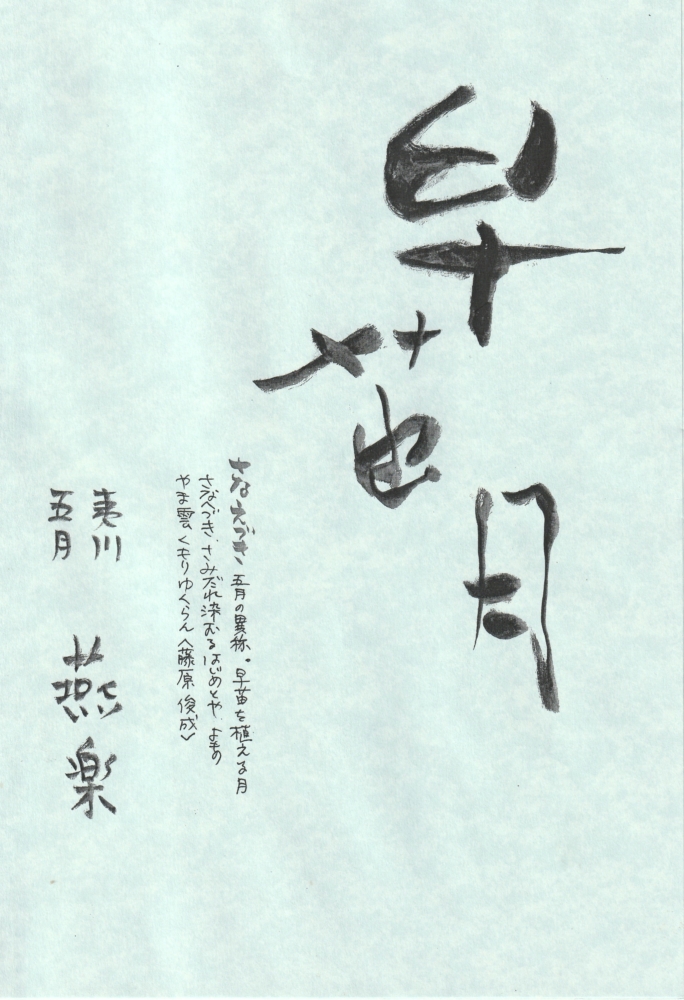 早苗月
さなえづき 五月の異称。早苗を植える月
さなへづき、さみだれ染むるはじめとや よもの
やま雲くもりゆくらん〈藤原俊成〉
夷川
五月
燕楽